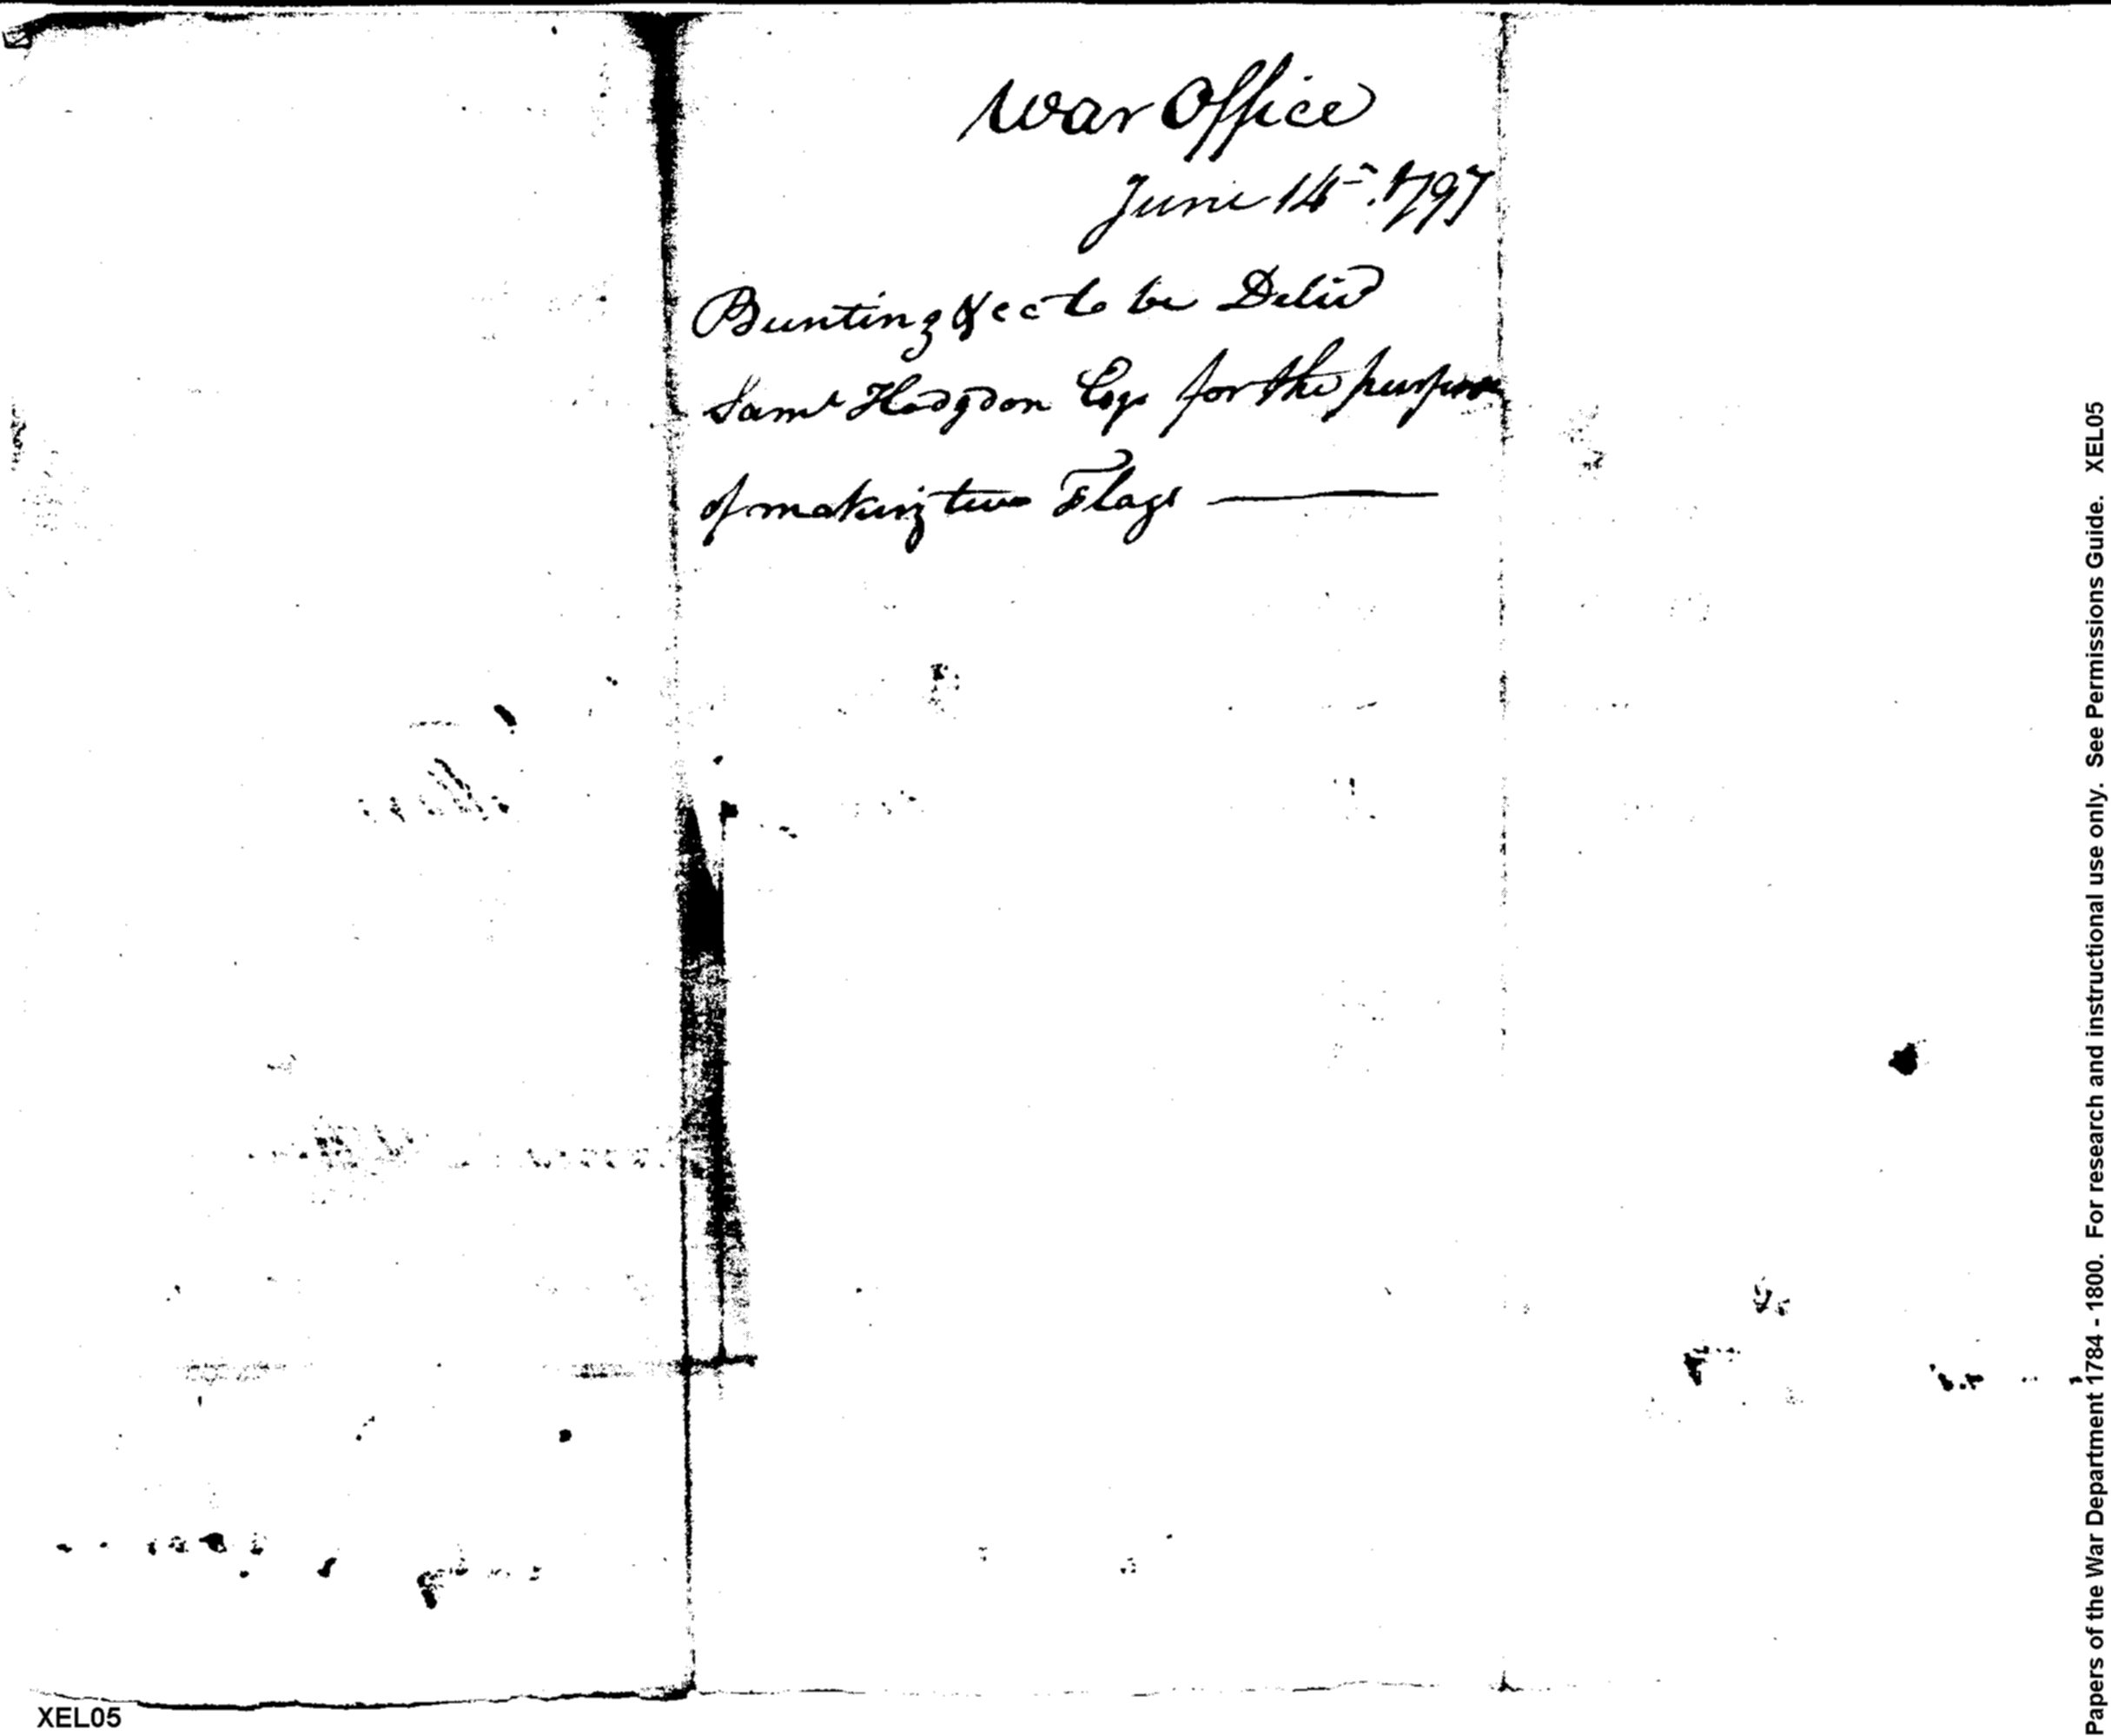 War Office
June 14th. 1797
Bunting &cc to be Delivd
Saml Hodgdon Esqr for the purpose
of making two Flags
Papers of the War Department 1784 - 1800. For research and instructional use only. See Permissions Guide. XEL05
XEL05